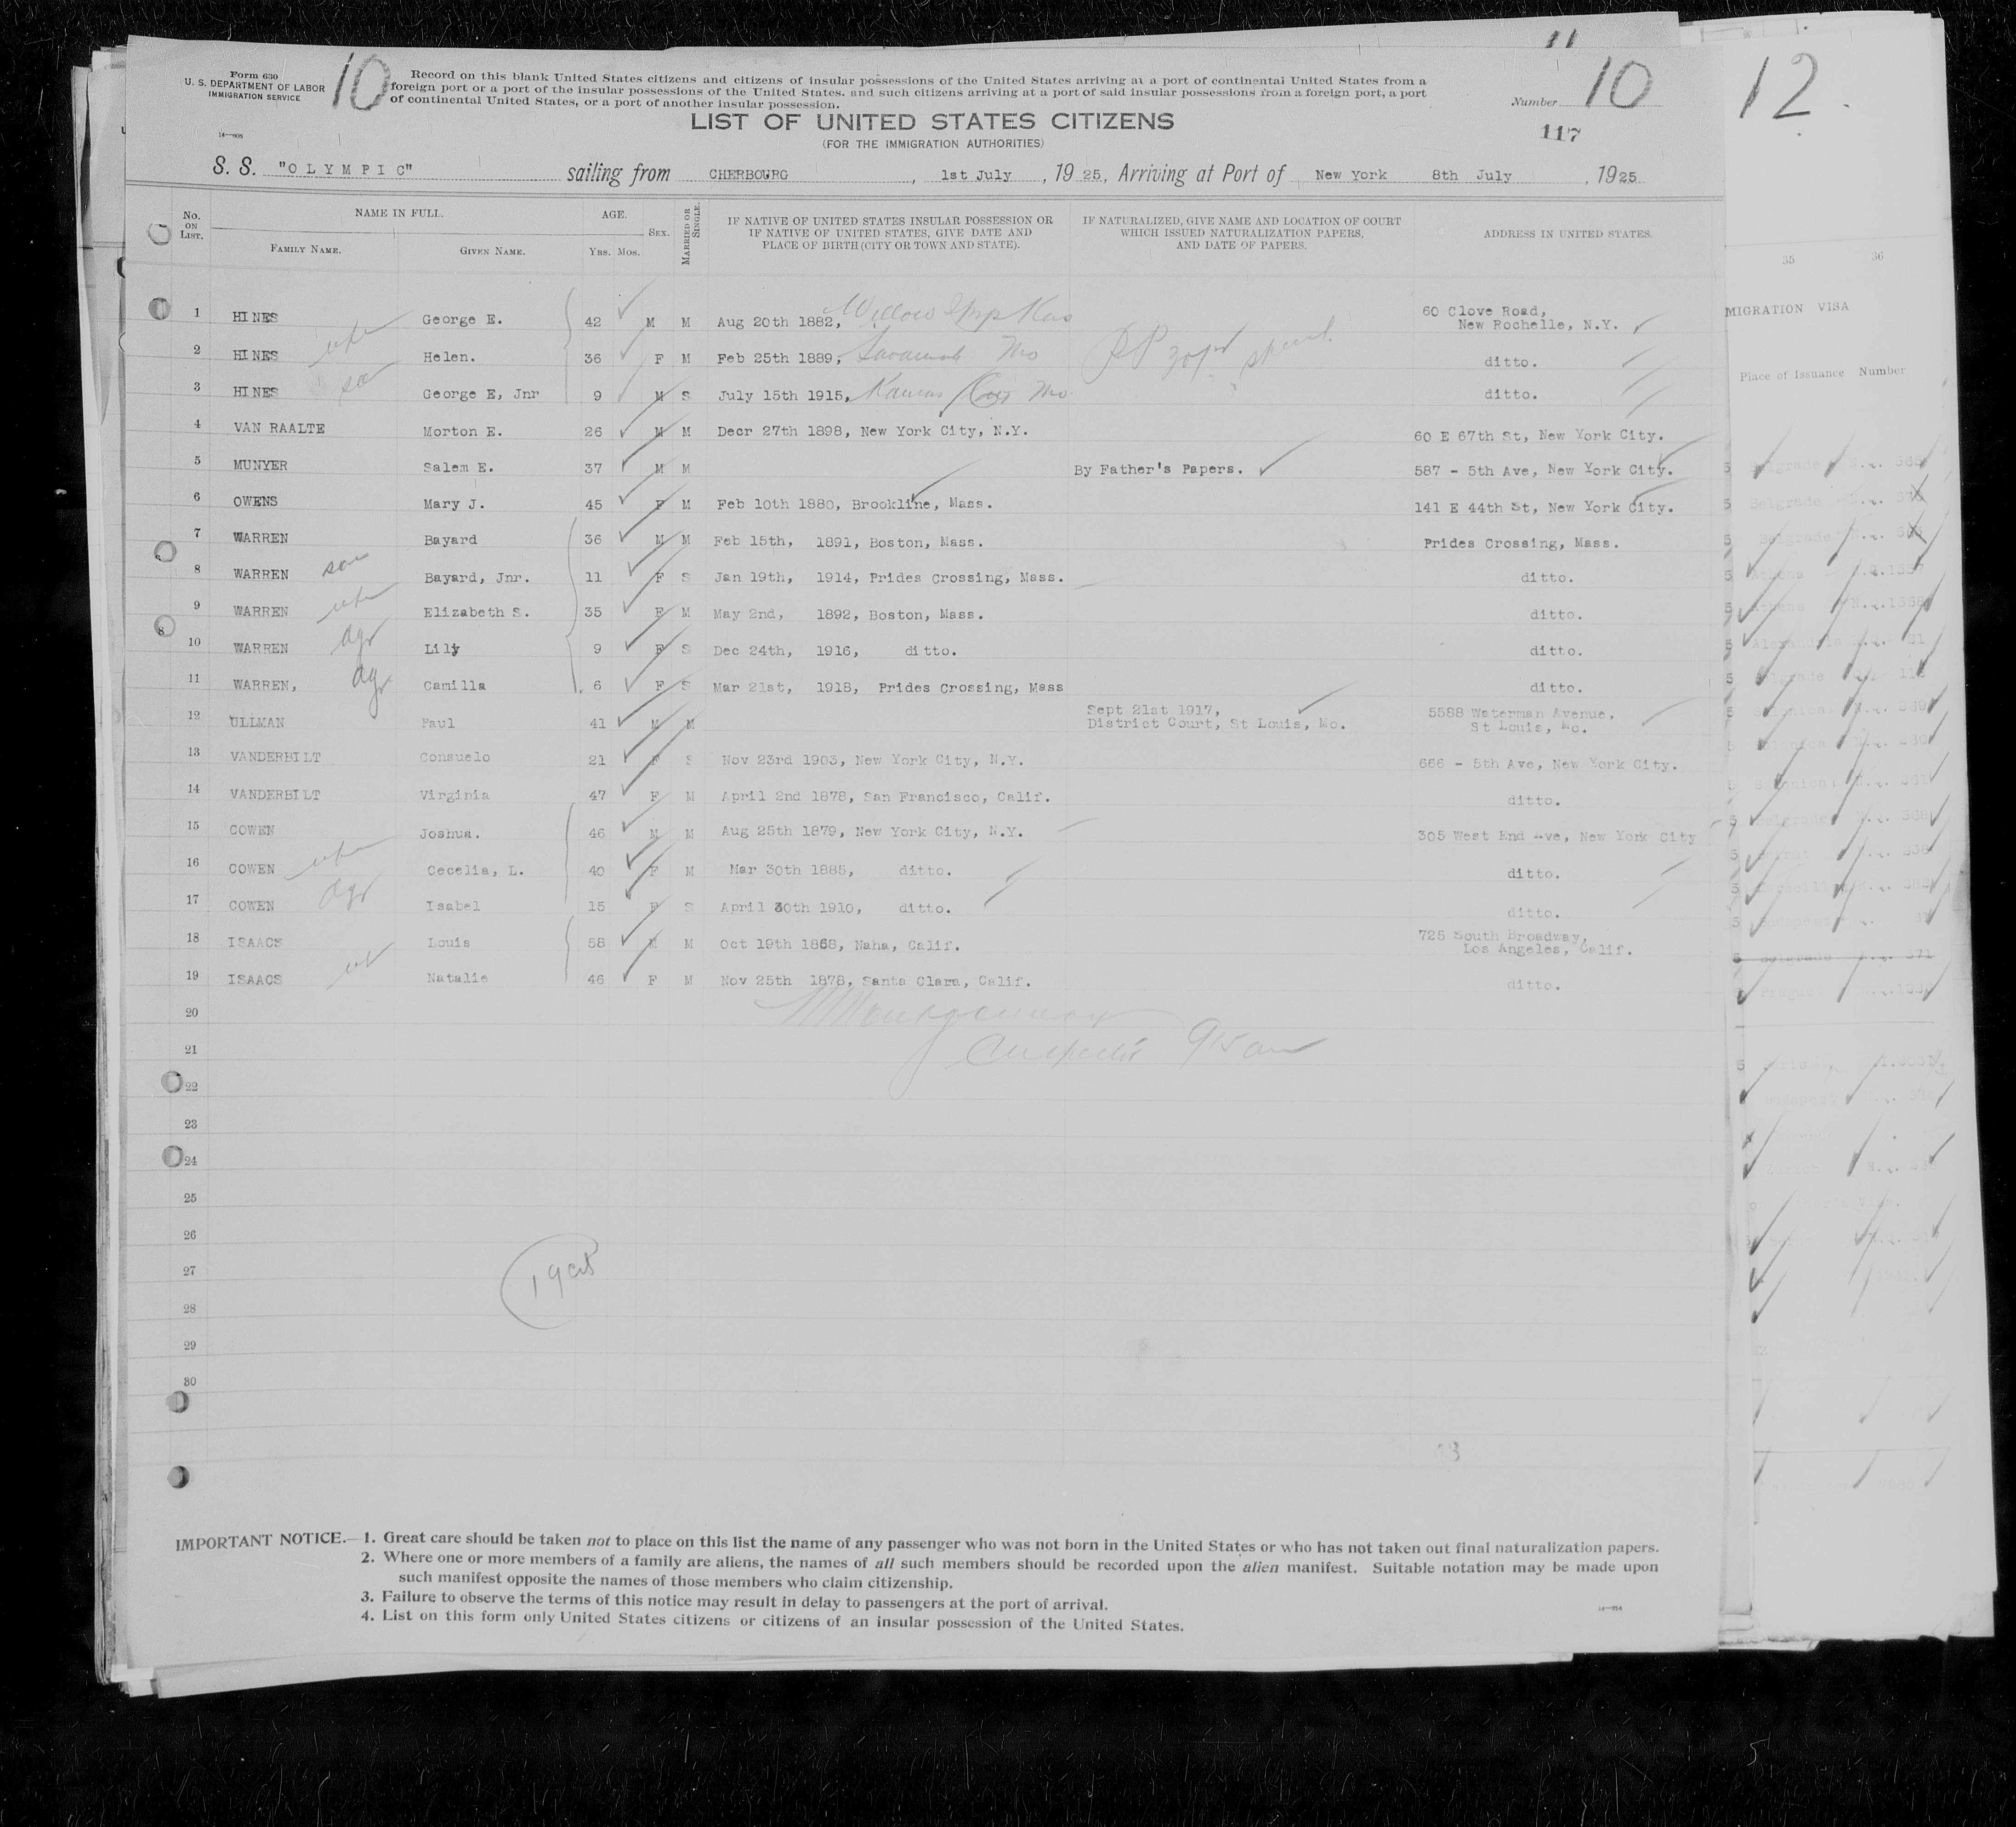 11
Form 630
U. S. DEPARTMENT OF LABOR
IMMIGRATION SERVICE
10
Record on this blank United States citizens and citizens of insular possessions of the United States arriving at a port of continental United States from a
foreign port or a port of the insular possessions of the United States, and such citizens arriving at a port of said insular possessions from a foreign port, a port
of continental United States, or a port of another insular possession.
Number 10
12
LIST OF UNITED STATES CITIZENS
(FOR THE IMMIGRATION AUTHORITIES)
117
S. S. "OLYMPIC" sailing from CHERBOURG, 1st July, 1925, Arriving at Port of New York 8th July, 1925
No. ON LIST. NAME IN FULL. FAMILY NAME. GIVEN NAME. AGE. YRS. MOS. SEX. MARRIED OR SINGLE. IF NATIVE OF UNITED STATES INSULAR POSSESSION OR IF NATIVE OF UNITED STATES, GIVE DATE AND PLACE OF BIRTH (CITY OR TOWN AND STATE). IF NATURALIZED, GIVE NAME AND LOCATION OF COURT WHICH ISSUED NATURALIZATION PAPERS, AND DATE OF PAPERS. ADDRESS IN UNITED STATES.
35 36
MIGRATION VISA
Place of Issuance Number
1 HINES George E. 42 M M Aug 20th 1882, Willow Kas 60 Clove Road, New Rochelle, N.Y.
2 HINES wife Helen. 36 F M Feb 25th 1889, Savannah Mo ditto.
3 HINES son George E, Jnr 9 M S July 15th 1915, Kansas City Mo ditto.
4 VAN RAALTE Morton E. 26 M M Decr 27th 1898, New York City, N.Y. 60 E 67th St, New York City.
5 MUNYER Salem E. 37 M M By Father's Papers. 587 - 5th Ave, New York City.
6 OWENS Mary J. 45 F M Feb 10th 1880, Brookline, Mass. 141 E 44th St, New York City.
7 WARREN Bayard 36 M M Feb 15th, 1891, Boston, Mass. Prides Crossing, Mass.
8 WARREN son Bayard, Jnr. 11 F S Jan 19th, 1914, Prides Crossing, Mass. ditto.
9 WARREN wife Elizabeth S. 35 F M May 2nd, 1892, Boston, Mass. ditto.
10 WARREN dgr Lily 9 F S Dec 24th, 1916, ditto. ditto.
11 WARREN, dgr Camilla 6 F S Mar 21st, 1918, Prides Crossing, Mass ditto.
12 ULLMAN Paul 41 M M Sept 21st 1917, District Court, St Louis, Mo. 5588 Waterman Avenue, St Louis, Mo.
13 VANDERBILT Consuelo 21 F S Nov 23rd 1903, New York City, N.Y. 666 - 5th Ave, New York City.
14 VANDERBILT Virginia 47 F M April 2nd 1878, San Francisco, Calif. ditto.
15 COWEN Joshua. 46 M M Aug 25th 1879, New York City, N.Y. 305 West End Ave, New York City
16 COWEN wife Cecelia, L. 40 F M Mar 30th 1885, ditto. ditto.
17 COWEN dgr Isabel 15 F S April 30th 1910, ditto. ditto.
18 ISAACS Louis 58 M M Oct 19th 1868, Naha, Calif. 725 South Broadway, Los Angeles, Calif.
19 ISAACS wf Natalie 46 F M Nov 25th 1878, Santa Clara, Calif. ditto.
20
21
22
23
24
25
26
27
28
29
30
IMPORTANT NOTICE.—1. Great care should be taken not to place on this list the name of any passenger who was not born in the United States or who has not taken out final naturalization papers.
2. Where one or more members of a family are aliens, the names of all such members should be recorded upon the alien manifest. Suitable notation may be made upon
such manifest opposite the names of those members who claim citizenship.
3. Failure to observe the terms of this notice may result in delay to passengers at the port of arrival.
4. List on this form only United States citizens or citizens of an insular possession of the United States.